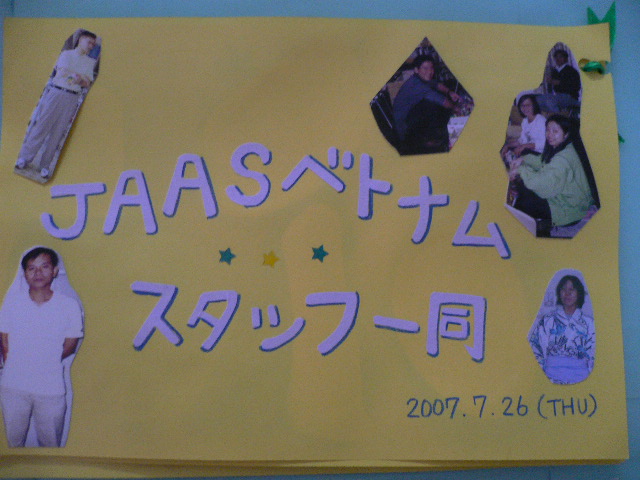 JAASベトナム
スタッフ一同
2007.7.26(THU)